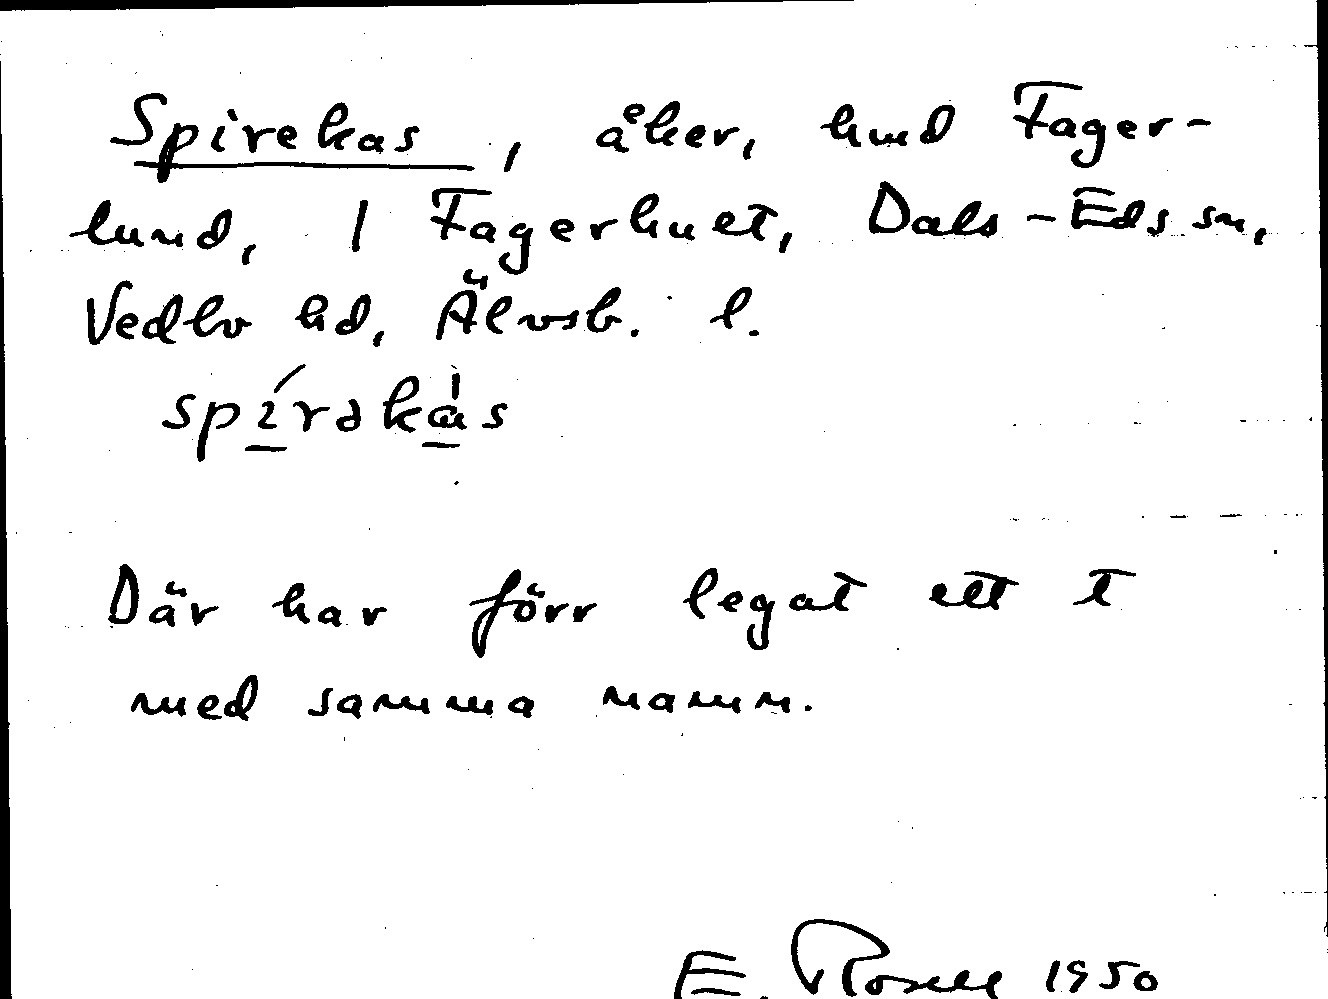 Spirekas, åker, hmd Fager-
lund, 1 Fagerhult, Dals-Eds sn,
Vedbo hd, Älvsb. l.
spírəkàs
Där har förr legat ett t
med samma namn.
E. Rosell 1950